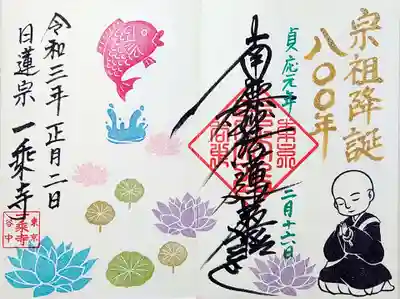 宗祖降誕
八〇〇年
貞応元年 二月十六日
南無妙法蓮華経
令和三年正月二日
日蓮宗 一乗寺
東京
一乗寺
谷中